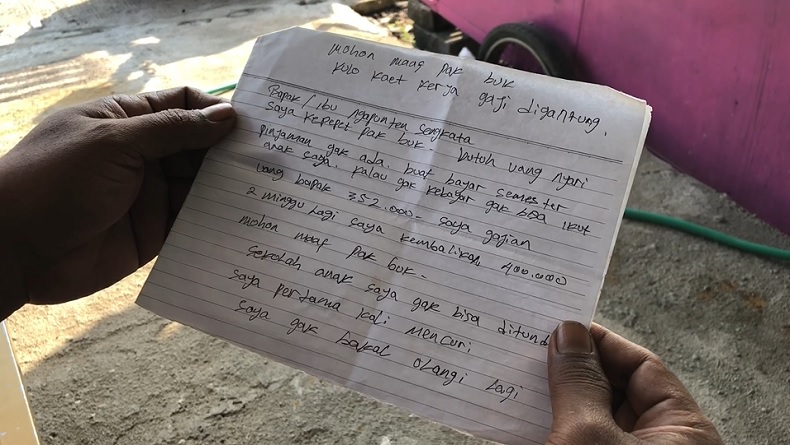 mohon maag pak buk
kulo kaet kerja gaji digantung.
Bapak / ibu ngapunten sengkata
saya kepepet pak buk butuh uang nyari
pinjaman gak ada. buat bayar semester
anak saya. kalau gak kebayar gak bisa ikut
uang bapak 352.000 saya gajian
2 minggu lagi saya kembalikan 400.000
mohon maaf pak buk -
sekolah anak saya gak bisa ditund
saya pertama kali mencuri
saya gak bakal olangi lagi